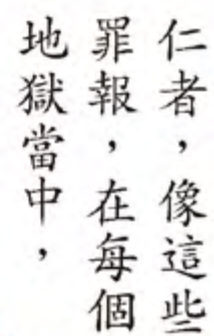 仁者，像這些
罪報，在每個
地獄當中，